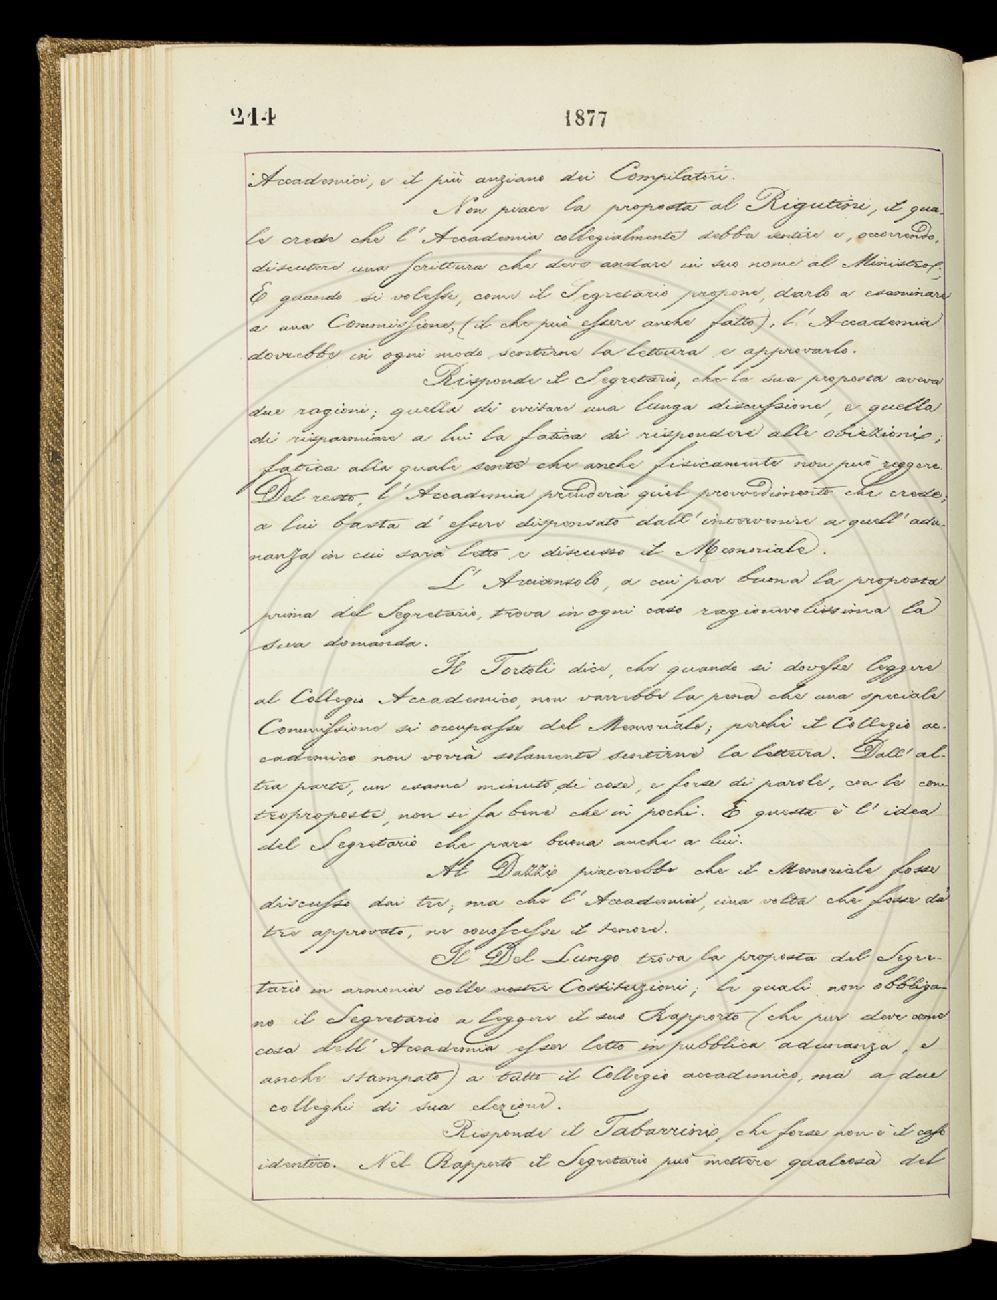 214
1877
Accademici, e il più anziano dei Compilatori.
Non piace la proposta al Rigutini, il qua-
le crede che l'Accademia collegialmente debba sentire e, occorrendo,
discutere una scrittura che deve andare in suo nome al Ministro;
E quando si volesse, come il Segretario propone, darlo a esaminare
a una Commissione, (il che può essere anche fatto), l'Accademia
dovrebbe in ogni modo, sentirne la lettura e approvarlo.
Risponde il Segretario, che la sua proposta aveva
due ragioni; quella di evitare una lunga discussione, e quella
di risparmiare a lui la fatica di rispondere alle obiezioni;
fatica alla quale sente che anche fisicamente non può reggere.
Del resto, l'Accademia prenderà quel provvedimento che crede;
a lui basta d'essere dispensato dall'intervenire a quell'adu-
nanza in cui sarà letto e discusso il Memoriale.
L'Arciconsolo, a cui par buona la proposta
prima del Segretario, trova in ogni caso ragionevolissima la
sua domanda.
Il Tortoli dice, che quando si dovesse leggere
al Collegio Accademico, non varrebbe la pena che una speciale
Commissione si occupasse del Memoriale; perchè il Collegio ac-
cademico non vorrà solamente sentirne la lettura. Dall'al-
tra parte, un esame minuto, di cose, e forse di parole, con le con-
troproposte, non si fa bene che in pochi. E questa è l'idea
del Segretario che pare buona anche a lui.
Al Dazzi piacerebbe che il Memoriale fosse
discusso dai tre; ma che l'Accademia, una volta che fosse da'
tre approvato, ne conoscesse il tenore.
Il Del Lungo trova la proposta del Segre-
tario in armonia colle nostre Costituzioni; le quali non obbliga-
no il Segretario a leggere il suo Rapporto (che pur deve come
cosa dell'Accademia esser letto in pubblica adunanza, e
anche stampato) a tutto il Collegio accademico, ma a due
colleghi di sua elezione.
Risponde il Tabarrini, che forse non è il caso
identico. Nel Rapporto il Segretario può mettere qualcosa del